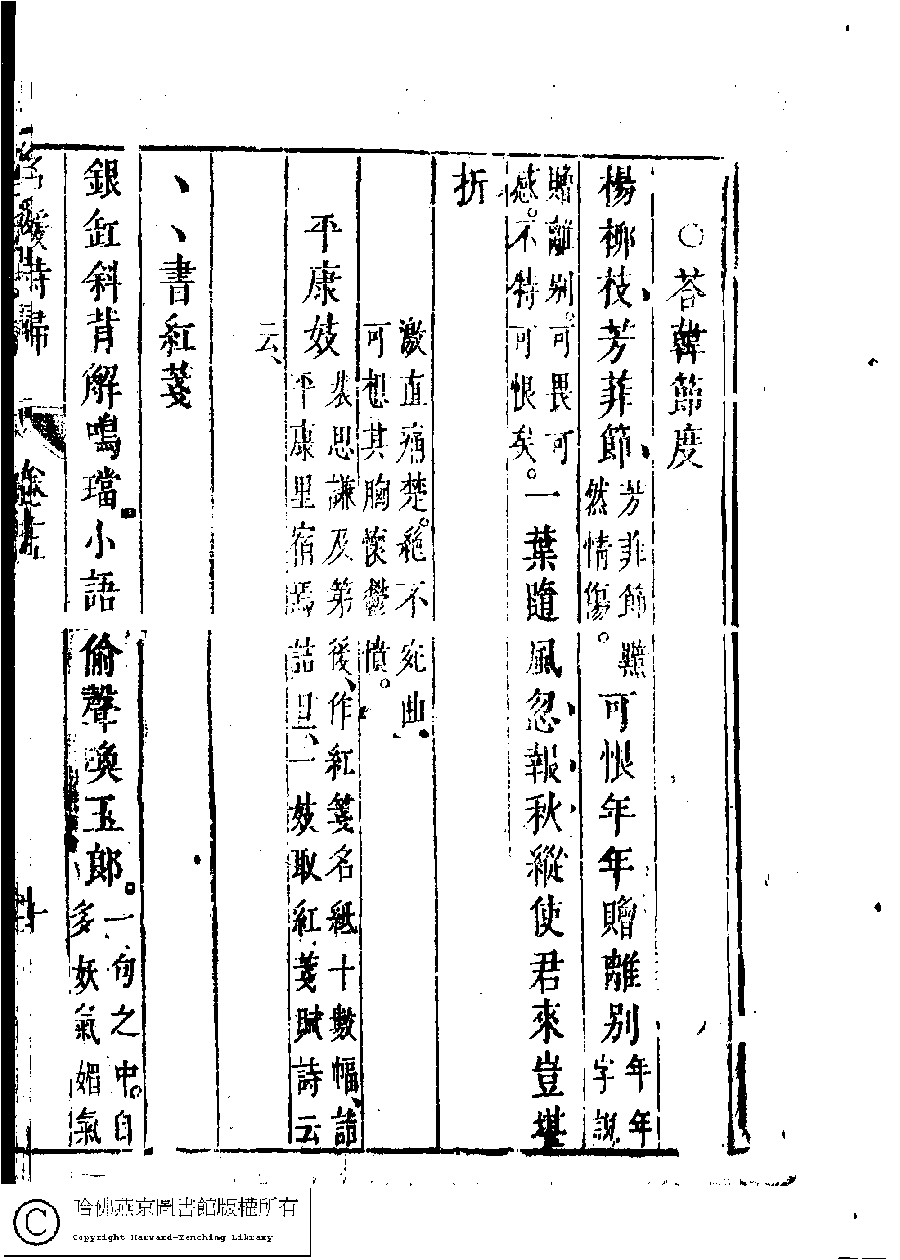 ○荅韓節度
楊柳枝芳菲節芳菲節黯然情傷。可恨年年贈離別年年字說
贈離別。可畏可感。不特可恨矣。一葉隨風忽報秋縱使君來豈堪
折
激直痛楚。絕不宛曲、可想其胸懷鬱憤。
平康妓裴思謙及第後、作紅箋名紙十數幅、詣平康里宿焉詰旦、一妓取紅箋賦詩云
云、
、、書紅箋
銀缸斜背解鳴璫小語偷聲喚玉郎。一句之中。自多妖氣媚氣
名媛詩歸
哈佛燕京圖書館版權所有
Copyright Harvard-Yenching Library